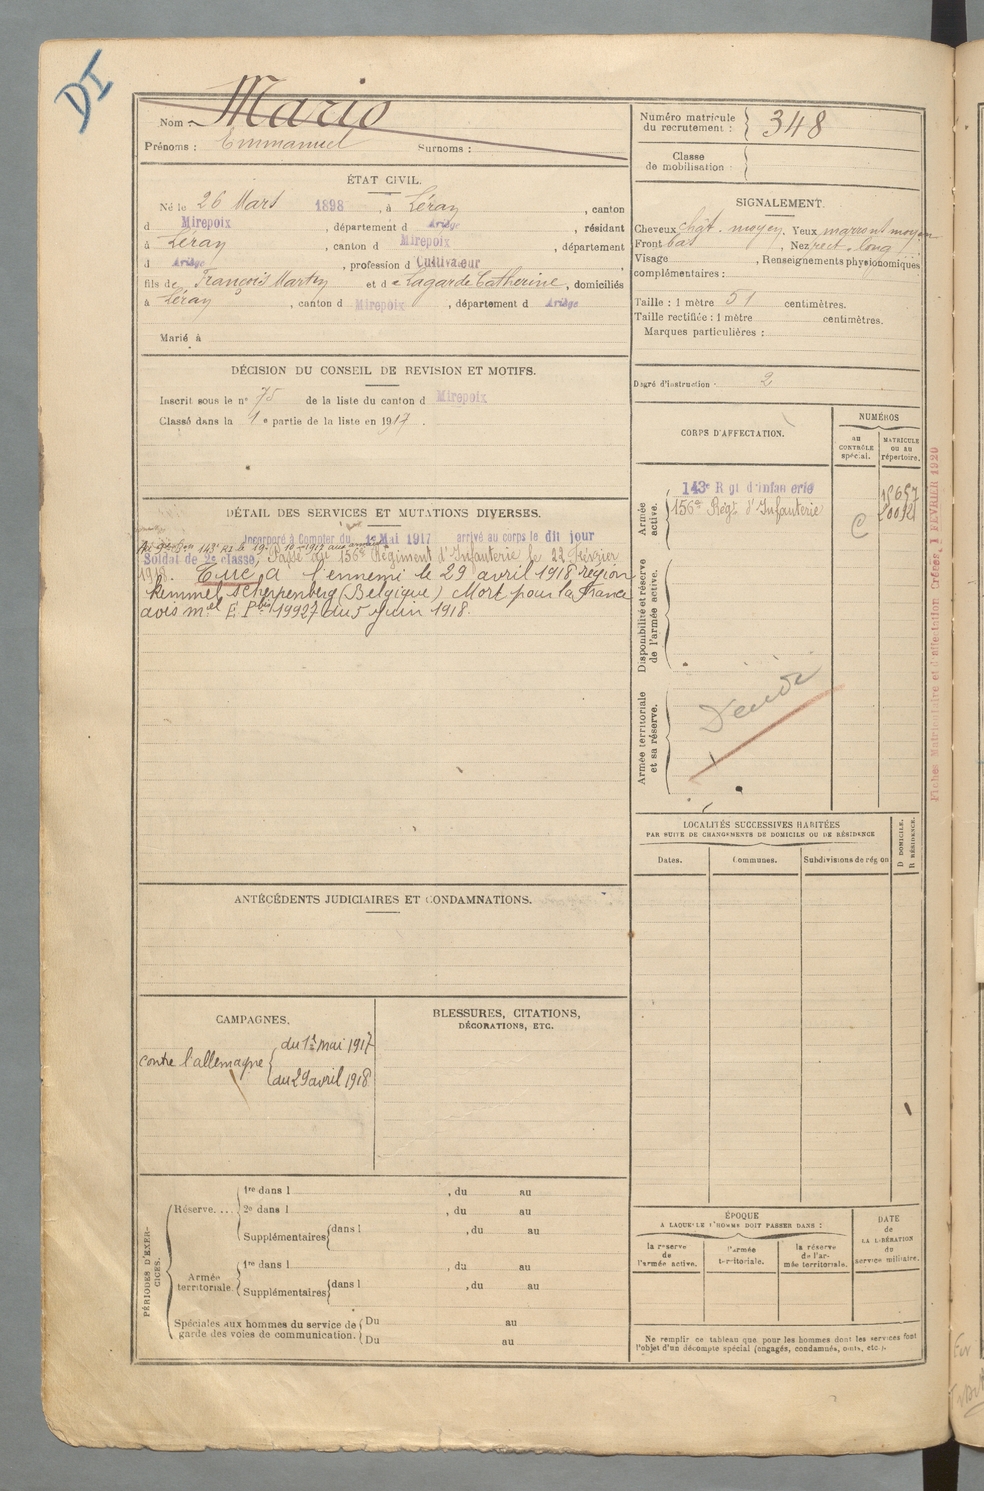 DI
Nom : Mario
Prénoms : Emmanuel Surnoms :
ÉTAT CIVIL.
Né le 26 Mars 1898, à Léran, canton
d Mirepoix, département d Ariège, résidant
à Léran, canton d Mirepoix, département
d Ariège, profession d Cultivateur,
fils de François Martin et d e Lagarde Catherine, domiciliés
à Léran, canton d Mirepoix, département d Ariège
Marié à
DÉCISION DU CONSEIL DE REVISION ET MOTIFS.
Inscrit sous le n° 75 de la liste du canton d Mirepoix
Classé dans la 1 e partie de la liste en 1917.
DÉTAIL DES SERVICES ET MUTATIONS DIVERSES.
Incorporé à Compter du 1er Mai 1917 arrivé au corps le dit jour
143e RI le 19-10-1917 aux armées
Soldat de 2e classe, Passé au 156e Régiment d'Infanterie le 22 Février
1918. Tué à l'ennemi le 29 avril 1918 région
Kemmel Scherpenberg (Belgique) Mort pour la France
avis mel E. P. 19927 du 5 Juin 1918
ANTÉCÉDENTS JUDICIAIRES ET CONDAMNATIONS.
CAMPAGNES.
contre l'allemagne { du 1er mai 1917
du 29 avril 1918
BLESSURES, CITATIONS,
DÉCORATIONS, ETC.
PÉRIODES D'EXERCICES.
Réserve.... { 1re dans l , du au
2e dans l , du au
Supplémentaires { dans l , du au
Armée territoriale. { 1re dans l , du au
Supplémentaires { dans l , du au
Spéciales aux hommes du service de { Du au
garde des voies de communication. { Du au
Numéro matricule
du recrutement : } 348
Classe
de mobilisation
SIGNALEMENT.
Cheveux chât. moyen. Yeux marront moyen
Front bas, Nez rect. long
Visage , Renseignements physionomiques
complémentaires :
Taille : 1 mètre 51 centimètres.
Taille rectifiée : 1 mètre centimètres.
Marques particulières :
Degré d'instruction : 2
CORPS D'AFFECTATION.
NUMÉROS
au CONTRÔLE spécial.
MATRICULE ou au répertoire.
Armée active.
143e Rgt d'Infanterie 15657
156e Régt d'Infanterie C
Disponibilité et réserve
de l'armée active.
Armée territoriale
et sa réserve.
LOCALITÉS SUCCESSIVES HABITÉES
PAR SUITE DE CHANGEMENTS DE DOMICILE OU DE RÉSIDENCE
Dates. Communes. Subdivisions de région
D DOMICILE. R RÉSIDENCE.
ÉPOQUE
A LAQUELLE L'HOMME DOIT PASSER DANS :
la réserve de l'armée active.
l'armée territoriale.
la réserve de l'armée territoriale.
DATE de LA LIBÉRATION du service militaire.
Ne remplir ce tableau que pour les hommes dont les services font
l'objet d'un décompte spécial (engagés, condamnés, omis, etc.).
Fiches Matriculaire et d'affectation Créées, 1 FÉVRIER 1920